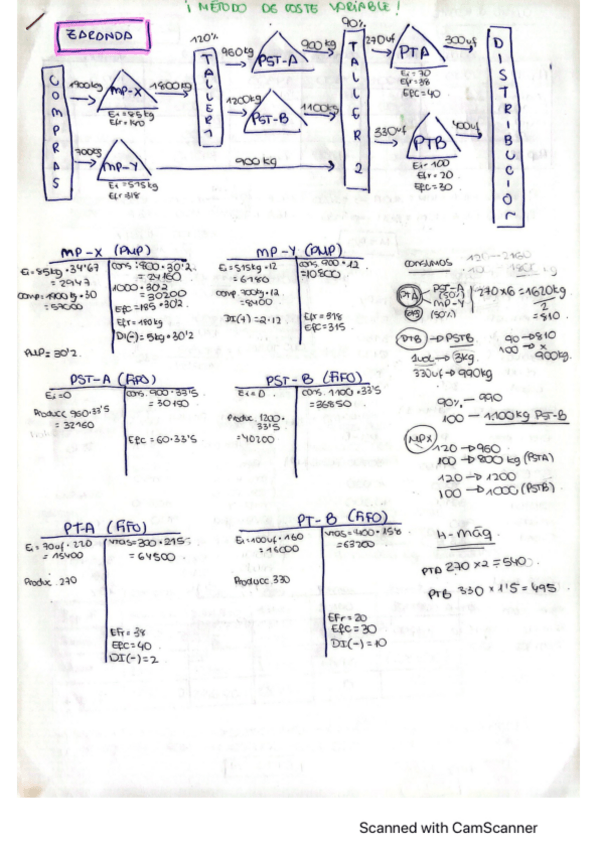 ¡ MÉTODO DE COSTE VARIABLE !
ZARONDA
COMPRAS
1900kg
MP-X
Ei = 85kg
Efr = 180
1800kg
700kg
MP-Y
Ei = 515kg
Efr = 318
120%
TALLER 1
960kg
PST-A
900kg
1200kg
PST-B
1100kg
900 kg
90%
TALLER 2
270uf
PTA
300uf
Ei = 70
Efr = 38
Efc = 40
330uf
PTB
400uf
Ei = 100
Efr = 20
Efc = 30
DISTRIBUCIÓN
MP-X (PMP)
Ei = 85kg · 34'67
= 2947
comp = 1900kg · 30
= 57000
PMP = 30'2
cons : 800 · 30'2
= 24160
1000 · 30'2
= 30200
Efc = 185 · 30'2
Efr = 180kg
DI(-) = 5kg · 30'2
MP-Y (PMP)
Ei = 515kg · 12
= 6180
comp. 700kg · 12
= 8400
DI(+) = 2 · 12
cons. 900 · 12
= 10800
Efr = 318
Efc = 315
CONSUMOS
PTA
PST-A (50%)
MP-Y (50%)
270 x 6 = 1620kg
2
= 810
PTB → PSTB
1ud → 3kg
330uf → 990kg
90 → 810
100 → x
900kg.
90% — 990
100 — 1.100kg PST-B
MPX
120 → 960
100 → 800 kg (PSTA)
120 → 1200
100 → 1000 (PSTB)
PST-A (FIFO)
Ei = 0
Producc. 960 · 33'5
= 32160
cons. 900 · 33'5
= 30150
Efc = 60 · 33'5
PST-B (FIFO)
Ei = 0
Produc. 1200 ·
33'5
= 40200
cons. 1100 · 33'5
= 36850
PT-A (FIFO)
Ei = 70uf · 220
= 15400
Produc. 270
Vtas = 300 · 215
= 64500
Efr = 38
Efc = 40
DI(-) = 2
PT-B (FIFO)
Ei = 100uf · 160
= 16000
Producc. 330
Vtas = 400 · 158
= 63200
Efr = 20
Efc = 30
DI(-) = 10
H-máq
PTA 270 x 2 = 540
PTB 330 x 1'5 = 495
Scanned with CamScanner